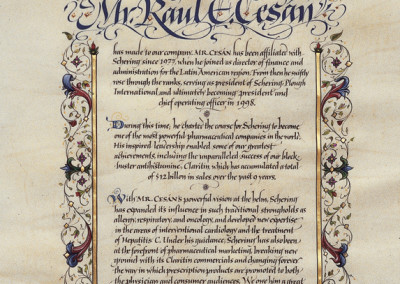 Mr. Raul E. Cesán
has made to our company. MR. CESÁN has been affiliated with
Schering since 1977, when he joined as director of finance and
administration for the Latin American region. From then he swiftly
rose through the ranks, serving as president of Schering-Plough
International, and ultimately becoming president and
chief operating officer in 1998.
During this time, he charted the course for Schering to become
one of the most powerful pharmaceutical companies in the world.
His inspired leadership enabled some of our greatest
achievements, including the unparalleled success of our block-
buster antihistamine, Claritin which has accumulated a total
of $12 billion in sales over the past 9 years.
With MR. CESÁN'S powerful vision at the helm, Schering
has expanded its influence in such traditional strongholds as
allergy, respiratory, and oncology, and developed new expertise
in the areas of interventional cardiology and the treatment
of Hepatitis C. Under his guidance, Schering has also been
at the forefront of pharmaceutical marketing, breaking new
ground with its Claritin commercials and changing forever
the way in which prescription products are promoted to both
the physician and consumer audiences. We owe him a great